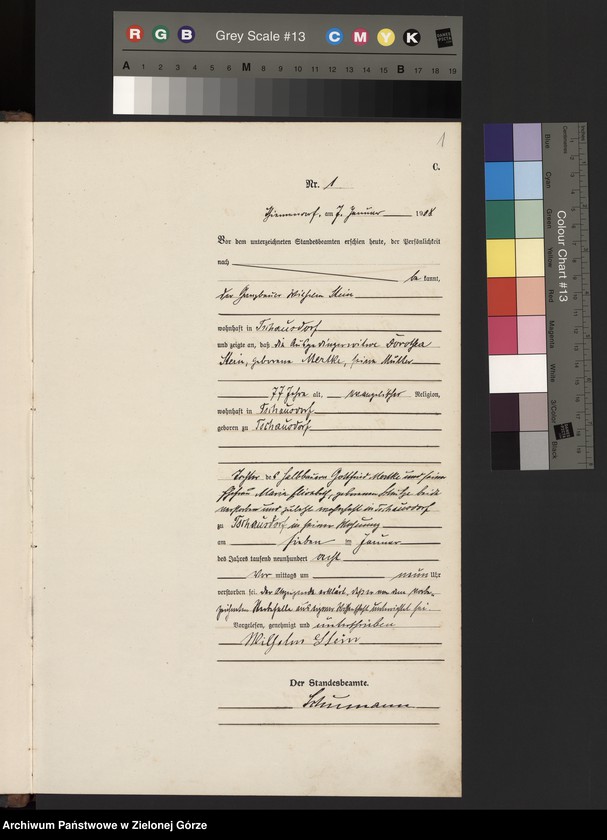 R G B Grey Scale #13 C M Y K
A 1 2 3 4 5 6 M 8 9 10 11 12 13 14 15 B 17 18 19
1
C.
Nr. 1
am 7. Januar 1908
Vor dem unterzeichneten Standesbeamten erschien heute, der Persönlichkeit
nach
be kannt,
der Ganzbauer Wilhelm Stein
wohnhaft in Tschausdorf
und zeigte an, daß die Ausgedingerwitwe Dorothea
Stein, geborene Mertke, seine Mutter
77 Jahre alt, evangelischer Religion,
wohnhaft in Tschausdorf
geboren zu Tschausdorf
Tochter des Halbbauern Gottfried Mertke und seiner
Ehefrau Marie Elisabeth, geborenen beide
verstorben und zuletzt wohnhaft in Tschausdorf
zu Tschausdorf in seiner Wohnung
am sieben ten Januar
des Jahres tausend neunhundert acht
Vor mittags um neun Uhr
verstorben sei. Der Anzeigende erklärt, daß er von dem vorbe-
zeichneten Sterbefalle aus eigener Wissenschaft unterrichtet sei
Vorgelesen, genehmigt und unterschrieben
Wilhelm Stein
Der Standesbeamte.
Schumann
Colour Chart #13
Blue Cyan Green Yellow Red Magenta White 3/Color Black
Centimetres Inches
Archiwum Państwowe w Zielonej Górze